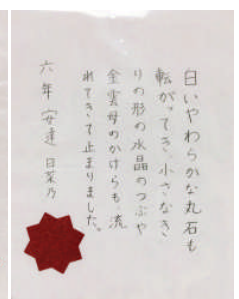 白いやわらかな丸石も
転がってき、小さなき
りの形の水晶のつぶや
金雲母のかけらも、流
れてきて止まりました。
六年 安達 日菜乃